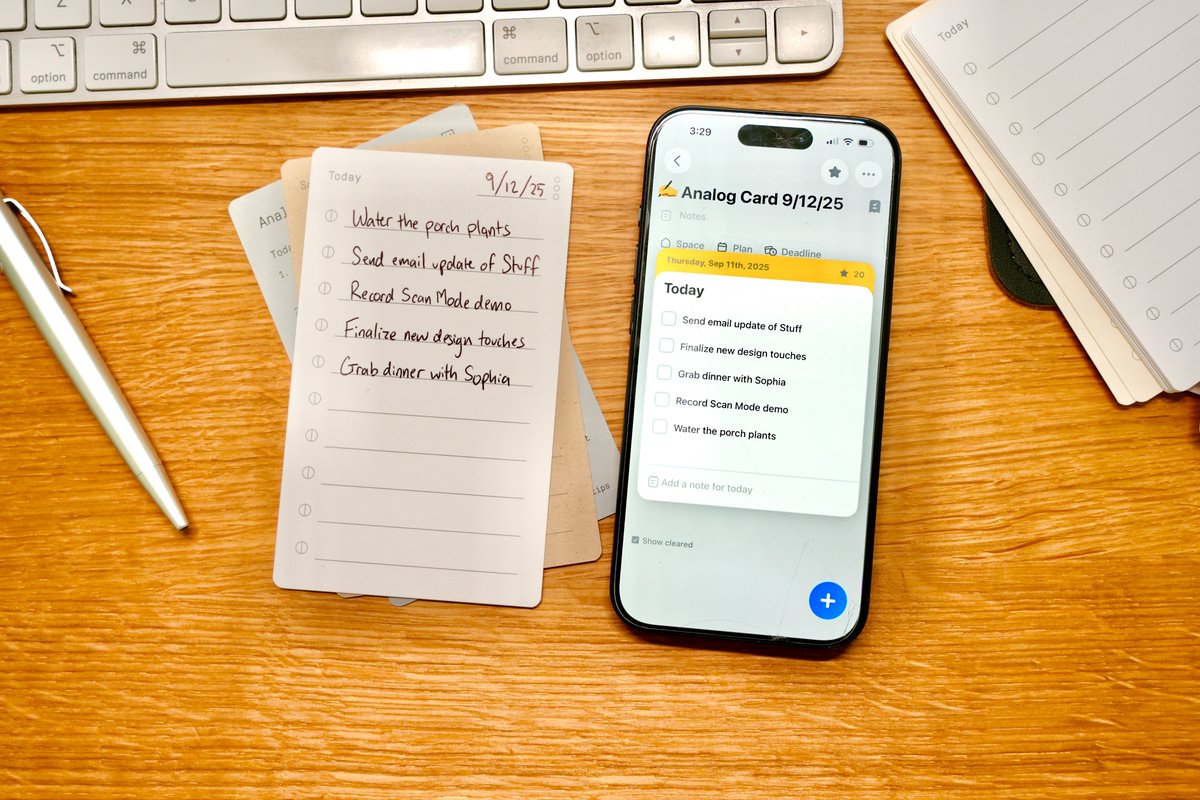 Z
X
option
command
command
option
Today
9/12/25
Water the porch plants
Send email update of Stuff
Record Scan Mode demo
Finalize new design touches
Grab dinner with Sophia
3:29
✍️ Analog Card 9/12/25
Notes
Space Plan Deadline
Thursday, Sep 11th, 2025 ★ 20
Today
Send email update of Stuff
Finalize new design touches
Grab dinner with Sophia
Record Scan Mode demo
Water the porch plants
Add a note for today
Show cleared
Today